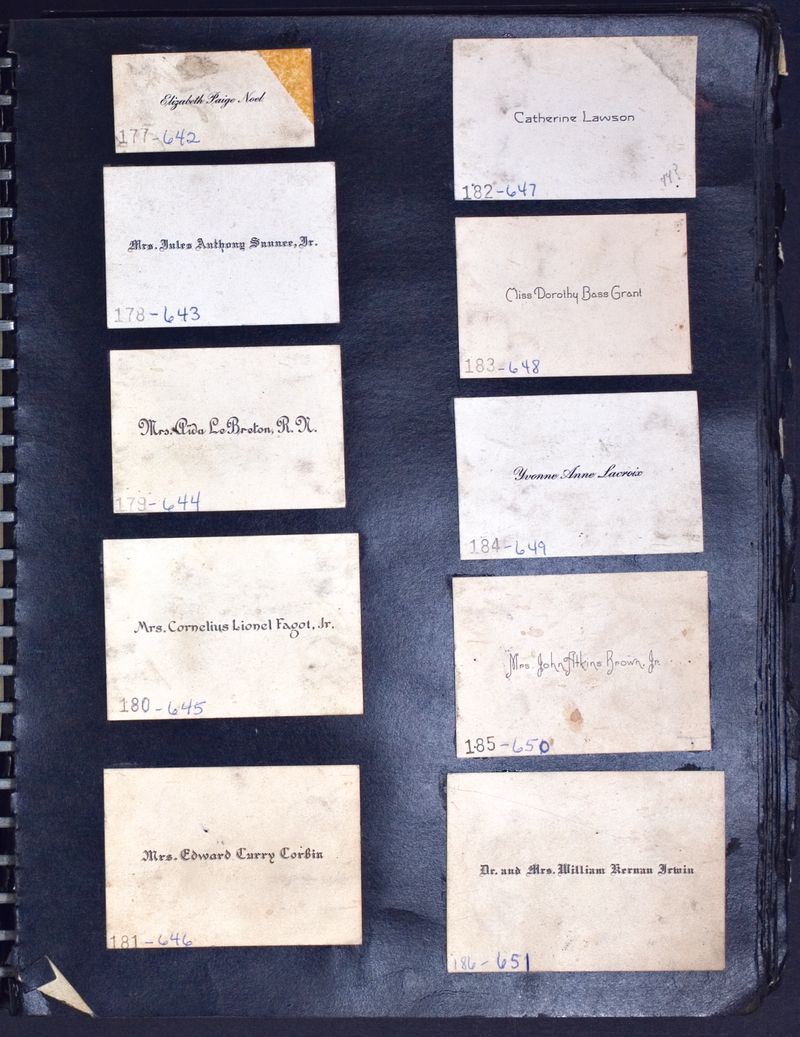 Elizabeth Paige Noel
177-642
Mrs. Jules Anthony Sunnee, Jr.
178-643
Mrs. Aida Le Breton, R. N.
179-644
Mrs. Cornelius Lionel Fagot, Jr.
180-645
Mrs. Edward Curry Corbin
181-646
Catherine Lawson
182-647
Miss Dorothy Bass Grant
183-648
Yvonne Anne Lacroix
184-649
Mrs. John Atkins Brown, Jr.
185-650
Dr. and Mrs. William Kernan Irwin
186-651